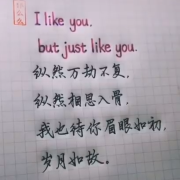 I like you.
but just like you.
纵然万劫不复,
纵然相思入骨,
我也待你眉眼如初,
岁月如故。